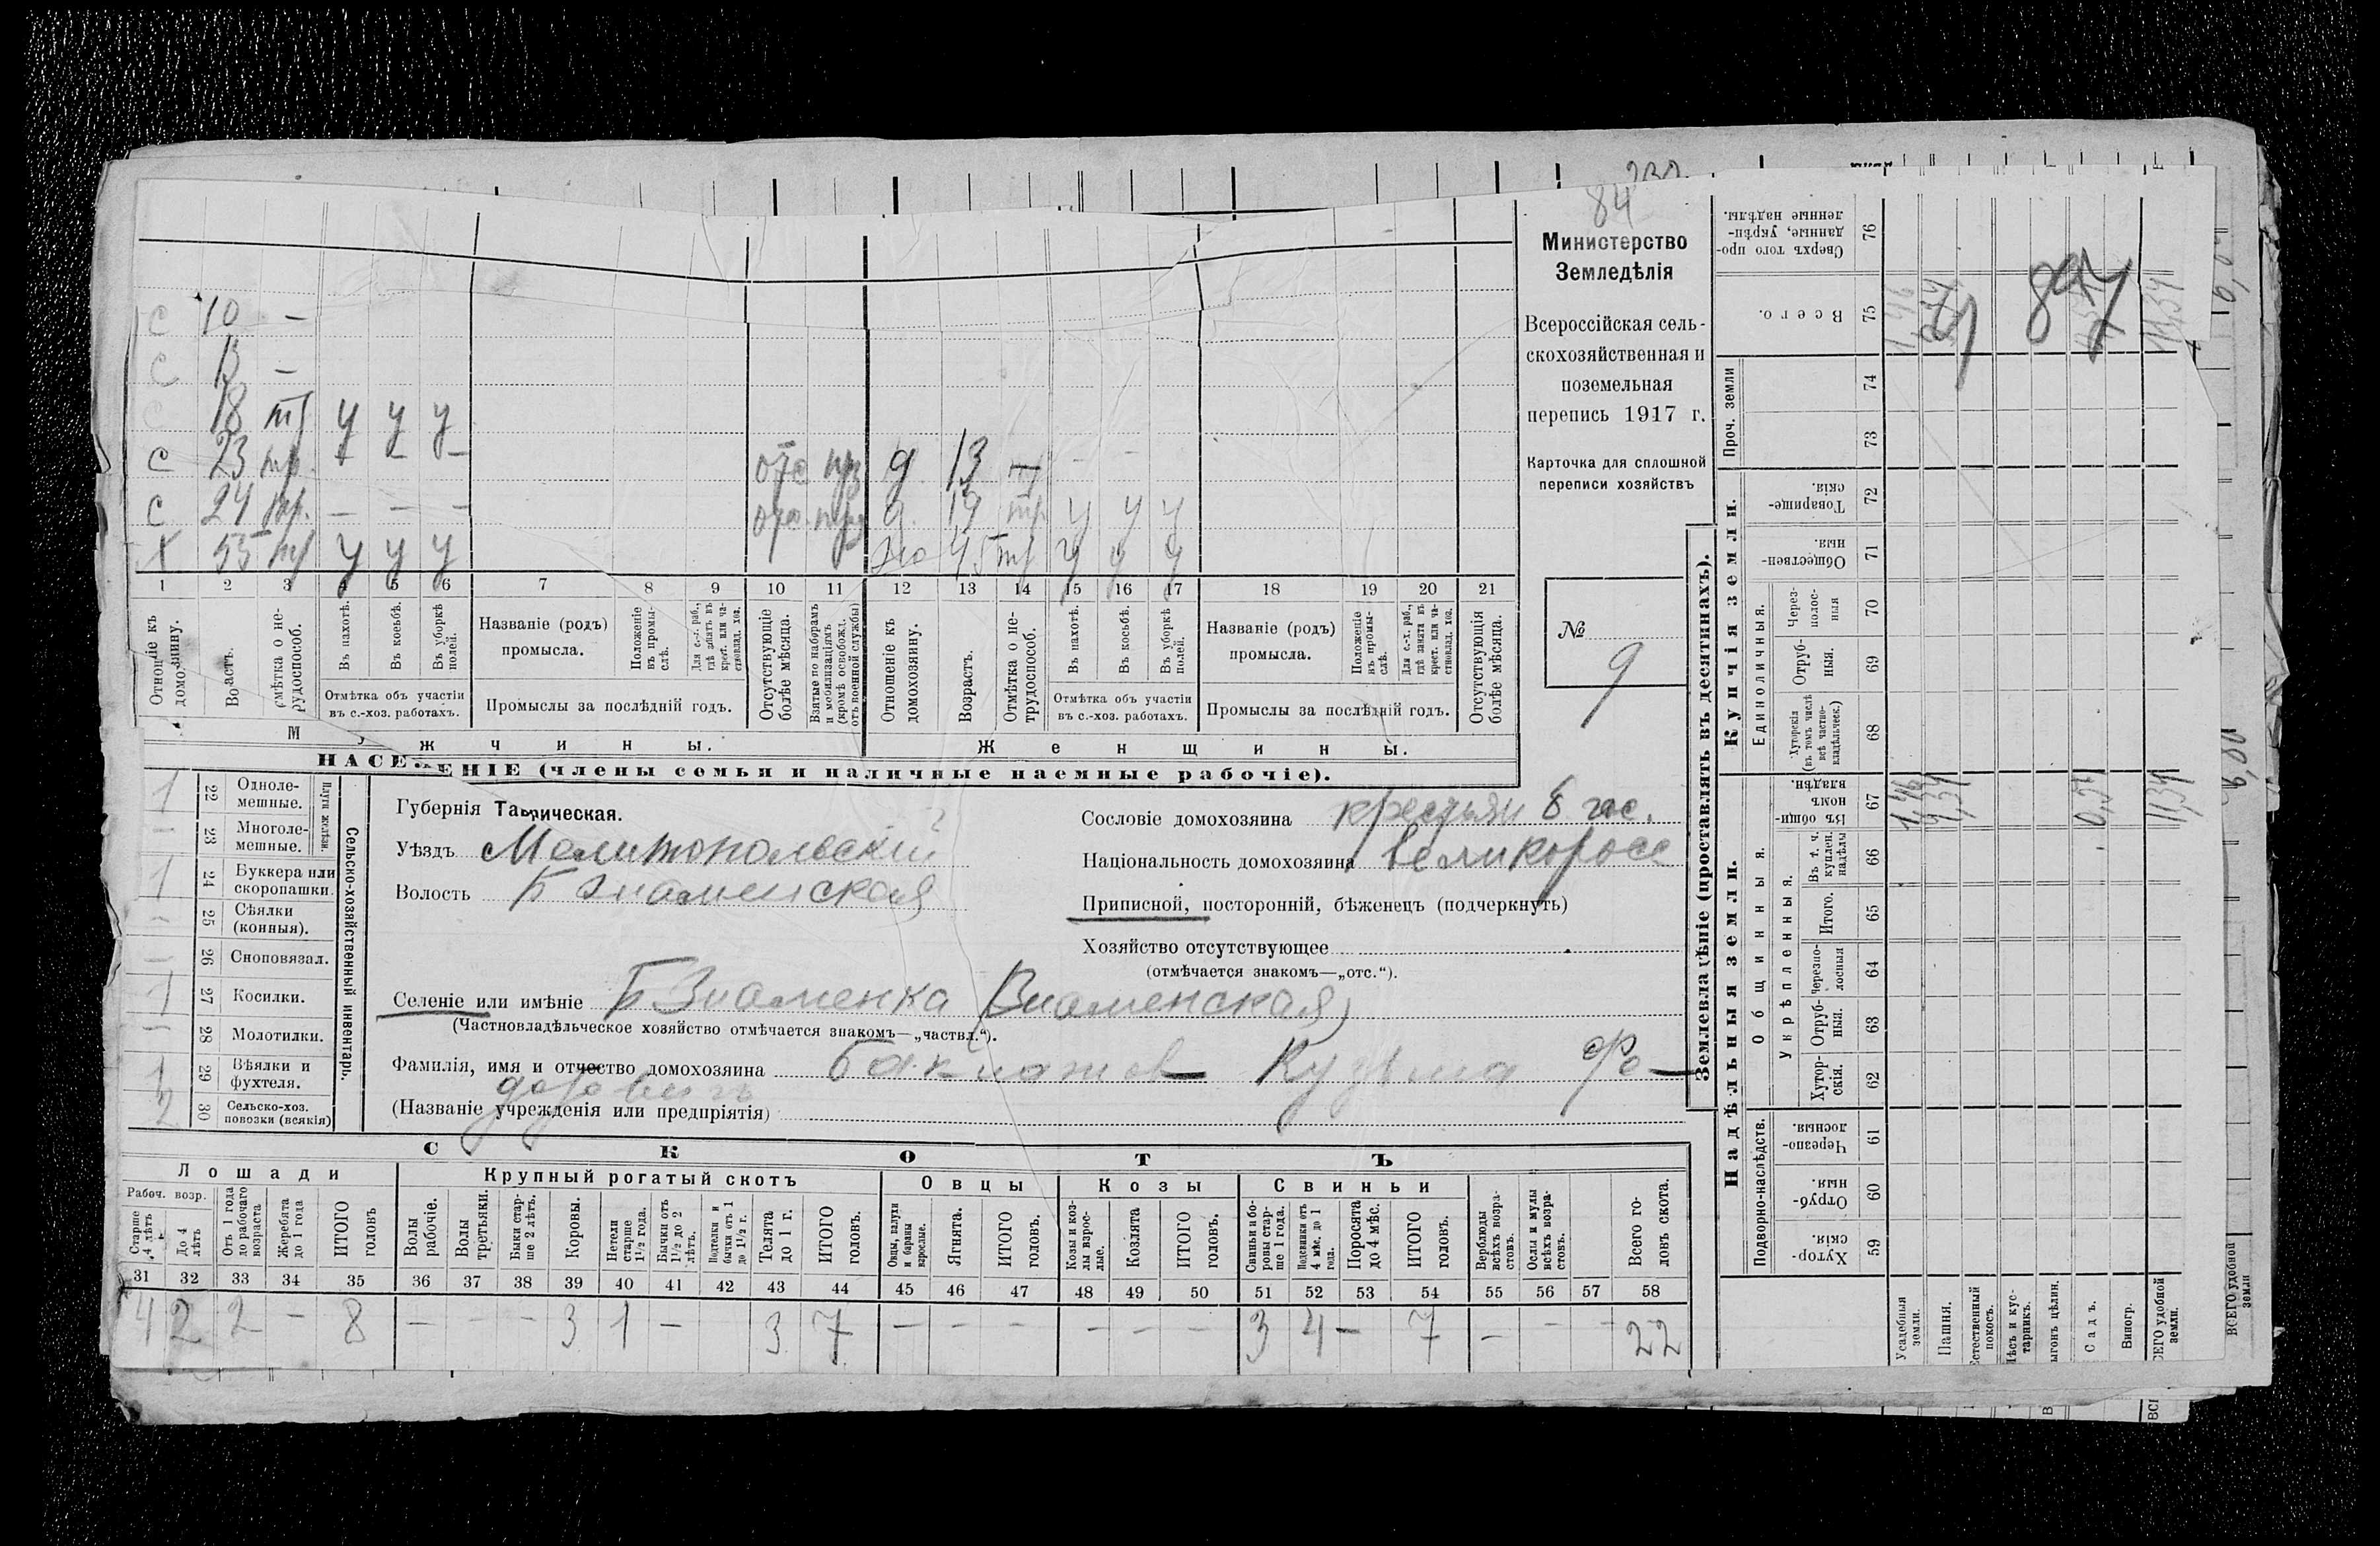 84
Министерство
Земледѣлія
Всероссійская сель-
скохозяйственная и
поземельная
перепись 1917 г.
Карточка для сплошной
переписи хозяйствъ
№
9
с 10 —
с 13 —
с 18 тр у у у
с 23 тр. — — — отс 
д 13 — — —
с 24 тр. — — — отс.
д. 19 тр у у у
х 55 тр у у у
жа 45 тр у у у
1 2 3 4 5 6 7 8 9 10 11 12 13 14 15 16 17 18 19 20 21
домохозяину.
Въ пахотѣ.
Въ косьбѣ.
Въ уборкѣ полей.
Отмѣтка объ участіи
въ с.-хоз. работахъ.
Названіе (родъ)
промысла.
Положеніе
въ промы-
слѣ.
Для с.-х. раб.,
гдѣ занятъ въ
крест. или ча-
стновлад. хоз.
Промыслы за послѣдній годъ.
Отсутствующіе
болѣе мѣсяца.
Взятые по наборамъ
и мобилизаціямъ
(кромѣ освобожд.
отъ военной службы)
Отношеніе къ
домохозяину.
Возрастъ.
Отмѣтка о не-
трудоспособ.
Въ пахотѣ.
Въ косьбѣ.
Въ уборкѣ
полей.
Отмѣтка объ участіи
въ с.-хоз. работахъ.
Названіе (родъ)
промысла.
Положеніе
въ промы-
слѣ.
Для с.-х. раб.,
гдѣ занята въ
крест. или ча-
стновлад. хоз.
Промыслы за послѣдній годъ.
Отсутствующія
болѣе мѣсяца.
Мужчины.
Женщины.
НАСЕЛЕНІЕ (члены семьи и наличные наемные рабочіе).
1 22 Одноле-
мешные.
— 23 Многоле-
мешные.
Плуги желѣзн.
1 24 Буккера или
скоропашки.
— 25 Сѣялки
(конныя).
— 26 Сноповязал.
1 27 Косилки.
— 28 Молотилки.
1 29 Вѣялки и
фухтеля.
2 30 Сельско-хоз.
повозки (всякія)
Сельско-хозяйственный инвентарь.
Губернія Таврическая.
Уѣздъ Мелитопольскій
Волость Б Знаменская
Селеніе или имѣніе Б Знаменка (Знаменская)
(Частновладѣльческое хозяйство отмѣчается знакомъ—„частвл.“).
Фамилія, имя и отчество домохозяина Кузьма Фе-
дотовичъ
(Названіе учрежденія или предпріятія)
Сословіе домохозяина
Національность домохозяина великоросс
Приписной, посторонній, бѣженецъ (подчеркнуть)
Хозяйство отсутствующее
(отмѣчается знакомъ—„отс.“).
СКОТЪ
Лошади
Рабоч. возр.
Старше
4 лѣтъ
До 4
лѣтъ
Отъ 1 года
до рабочаго
возраста
Жеребята
до 1 года
ИТОГО
головъ
Крупный рогатый скотъ
Волы
рабочіе.
Волы
третьяки.
Быки стар-
ше 2 лѣтъ.
Коровы.
Нетели
старше
1½ года.
Бычки отъ
1½ до 2
лѣтъ.
Подтелки и
бычки отъ 1
до 1½ г.
Телята
до 1 г.
ИТОГО
головъ.
Овцы
Овцы, валухи
и бараны
взрослые.
Ягнята.
ИТОГО
головъ.
Козы
Козы и коз-
лы взрос-
лые.
Козлята
ИТОГО
головъ.
Свиньи
Свиньи и бо-
ровы стар-
ше 1 года.
Подсвинки отъ
4 мѣс. до 1
года.
Поросята
до 4 мѣс.
ИТОГО
головъ.
Верблюды
всѣхъ возра-
стовъ.
Ослы и мулы
всѣхъ возра-
стовъ.
Всего го-
ловъ скота.
31 32 33 34 35 36 37 38 39 40 41 42 43 44 45 46 47 48 49 50 51 52 53 54 55 56 57 58
4 2 2 — 8 — — — 3 1 — 3 7 — — — — — — 3 4 — 7 — — — 22
Землевладѣніе (проставлять въ десятинахъ).
Надѣльныя земли.
Купчія земли.
Проч. земли
Подворно-наслѣдств.
Общинныя.
Укрѣпленныя.
Единоличныя.
Сверхъ того про-
данные, укрѣп-
ленные надѣлы.
76
Всего.
75
74
73
Товарище-
скія.
72
Обществен-
ныя.
71
Через-
полос-
ныя
70
Отруб-
ныя.
69
Хуторскія
(въ томъ числѣ
всѣ частно-
владѣльческ.)
68
Въ общи-
номъ
владѣн.
67
Въ т. ч.
куплен.
надѣлы
66
Итого.
65
Черезпо-
лосныя
64
Отруб-
ныя.
63
Хутор-
скія.
62
Черезпо-
лосныя.
61
Отруб-
ныя.
60
Хутор-
скія
59
Усадебныя
земли.
Пашня.
Естественный
покосъ.
Лѣсъ и кус-
тарникъ.
Садъ.
Виногр.
ВСЕГО удобной
земли
11,34